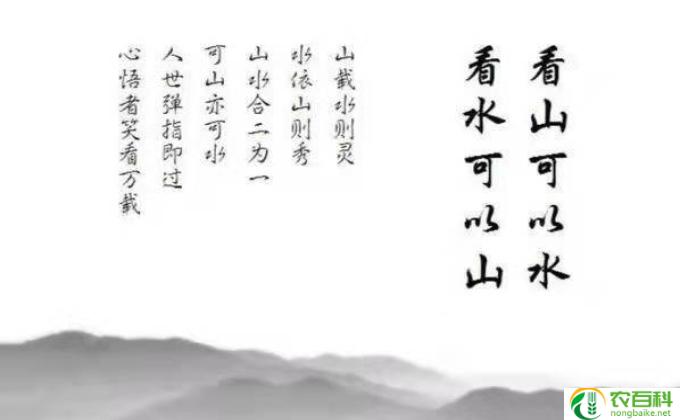 看山可以水
看水可以山
山载水则灵
水依山则秀
山水合二为一
可山亦可水
人世弹指即过
心悟者笑看万载
农百科
nongbaike.net